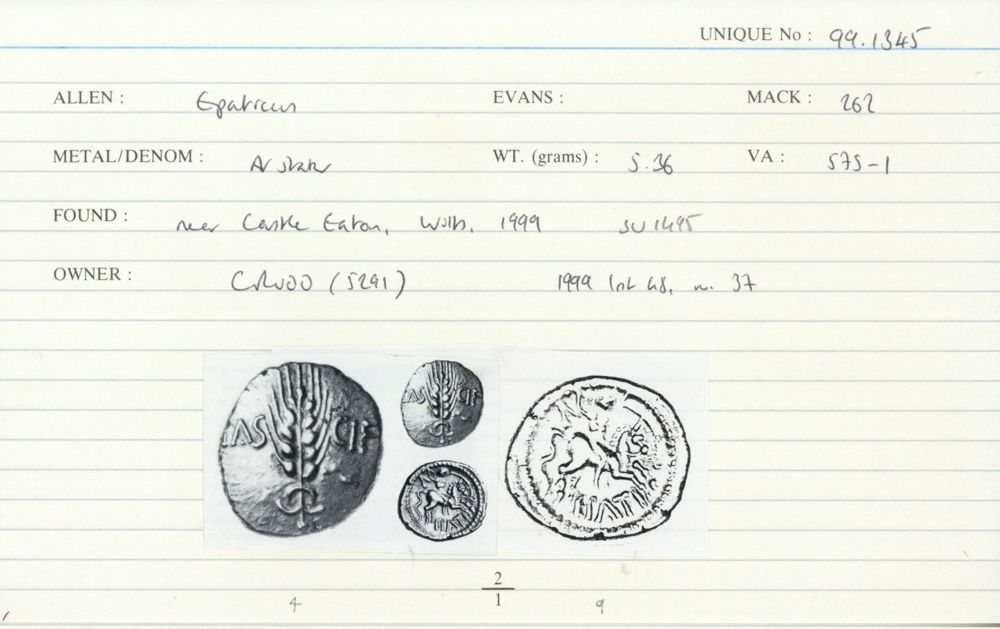 UNIQUE No : 99.1345
ALLEN : Epaticcus EVANS : MACK : 262
METAL/DENOM : AV stater WT. (grams) : 5.36 VA : 575-1
FOUND : near Castle Eaton, Wilts, 1999 SU 1495
OWNER : CR (5291) 1999 n. 37
TAS CIF
TAS CIF
2
1
4 9